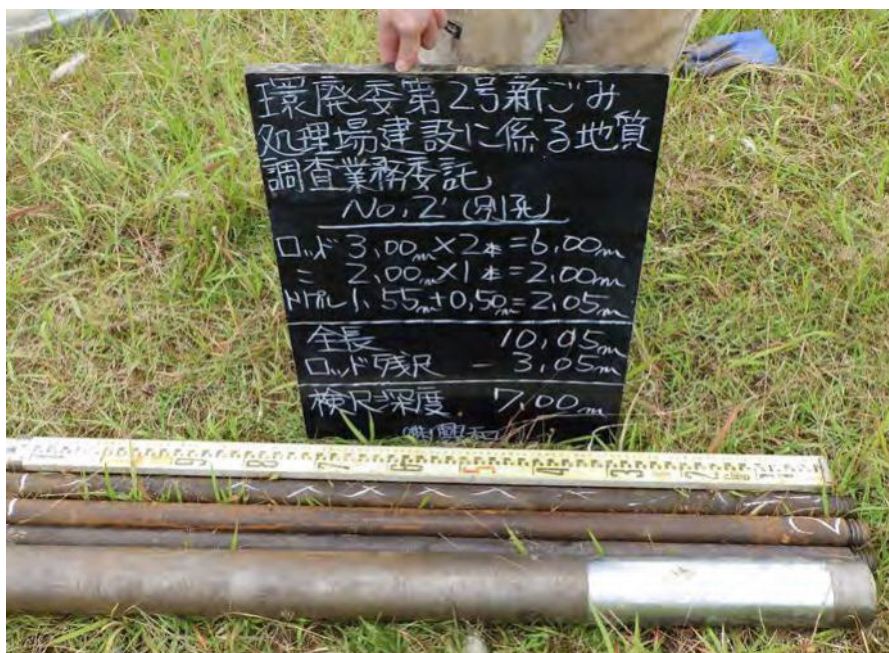 環廃委第2号新ごみ
処理場建設に係る地質
調査業務委託
No.2'(別孔)
ロッド 3.00m×2本=6.00m
〃 2.00m×1本=2.00m
トリプル1.55m+0.50m=2.05m
全長 10.05m
ロッド残尺 - 3.05m
検尺深度 7.00m
9 8 7 6 5 4 3 2